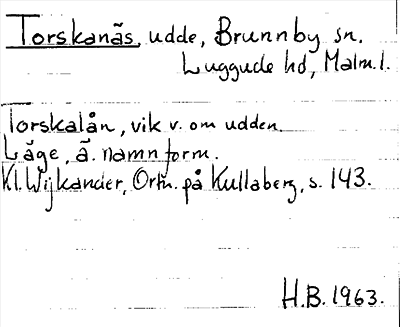 Torskanäs, udde, Brunnby sn.
Luggude hd, Malm. l.
Torskalån, vik v. om udden.
Läge, ä. namnform.
Kl. Wijkander, Ortn. på Kullaberg, s. 143.
H.B. 1963.